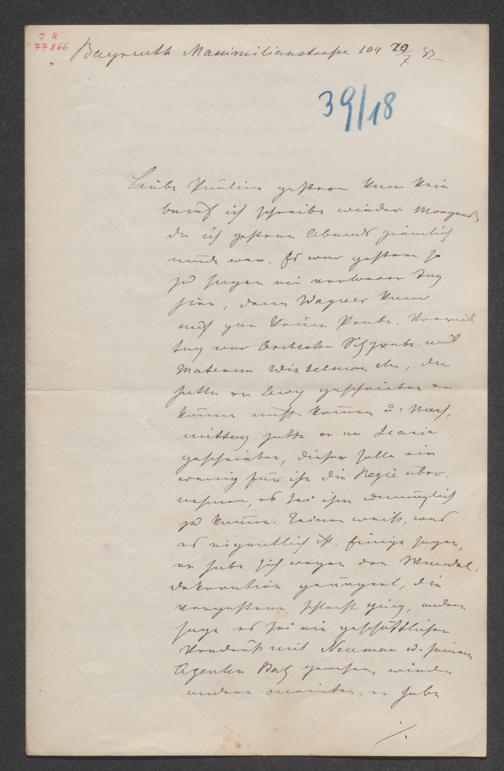 J N
77866
Bayreuth Maximilianstrasse 109 20/7 82
39/18
Liebe Pauline gestern kam kein
brief ich schreibe wieder Morgens,
da ich gestern Abends ziemlich
müde war. Es war gestern so
zu sagen ein verlorener Tag
hier, denn Wagner kam
auf gar keine Probe. Vormit
tag war Orchester Sitzprobe mit
Materna Winkelmann etc., da
hatte er Levy geschrieben er
könne nicht kommen u. Nach,
mittag hatte er an Scaria
geschrieben, dieser solle ein
wenig für ihn die Regie über,
nehmen, es sei ihm unmöglich
zu kommen. Keiner weiß, was
es eigentlich ist. Einige sagen,
er habe sich wegen der Wandel,
dekoration geärgert, die
vorgestern schlecht ging, andere
sagen es sei ein geschäftlicher
Verdruß mit Neuman u. seinem
Agenten Batz gewesen, wieder
andere meinten, er habe
./.